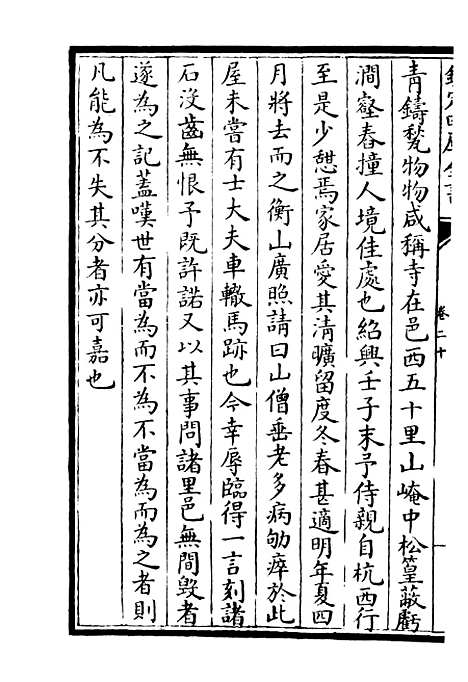 欽定四庫全書
卷二十
青鑄甃物物咸稱寺在邑西五十里山崦中松篁蔽虧
澗壑舂撞人境佳處也紹興壬子末予侍親自杭西行
至是少憇焉家居愛其清曠留度冬春甚適明年夏四
月將去而之衡山廣照請曰山僧垂老多病劬瘁於此
屋未嘗有士大夫車轍馬跡也今幸辱臨得一言刻諸
石沒齒無恨予既許諾又以其事問諸里邑無間毀者
遂為之記蓋嘆世有當為而不為不當為而為之者則
凡能為不失其分者亦可嘉也